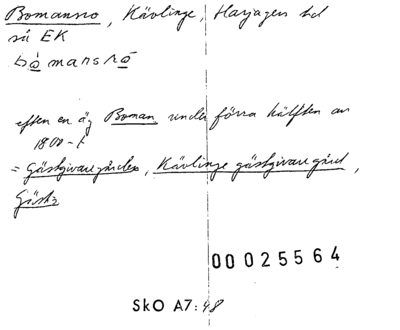 Bomansro, Kävlinge, Harjagers hd
så EK
bo mansro
efter en äg Boman under förra hälften av
1800-t
= Gästgivaregården, Kävlinge gästgivaregård,
Gästg
00025564
SkO A7:48